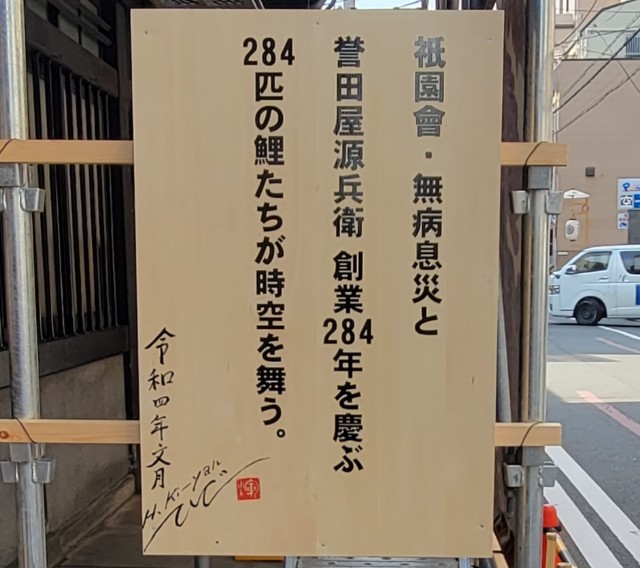 祇園會・無病息災と
誉田屋源兵衛 創業284年を慶ぶ
284匹の鯉たちが時空を舞う。
令和四年文月
H. Ki-yan